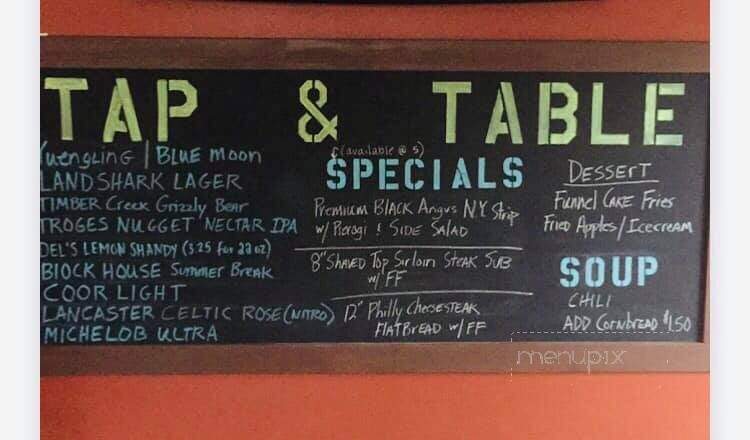 TAP & TABLE
Yuengling | BLUE MOON
LANDSHARK LAGER
TIMBER Creek Grizzly Bear
TROGES NUGGET NECTAR IPA
DEL'S LEMON SHANDY ($ 25 for 22 oz)
BLOCK HOUSE Summer Break
COOR LIGHT
LANCASTER CELTIC ROSE (NITRO)
MICHELOB ULTRA
(available @ 5)
SPECIALS
Premium BLACK Angus N.Y. Strip
w/ Pierogi & SIDE SALAD
8" SHAVED Top Sirloin STEAK SUB
w/ FF
12" Philly CheeseSTEAK
FLATBREAD w/ FF
DESSERT
Funnel CAKE Fries
Fried Apples/Icecream
SOUP
CHILI
ADD CornbreAD $1.50
menupix